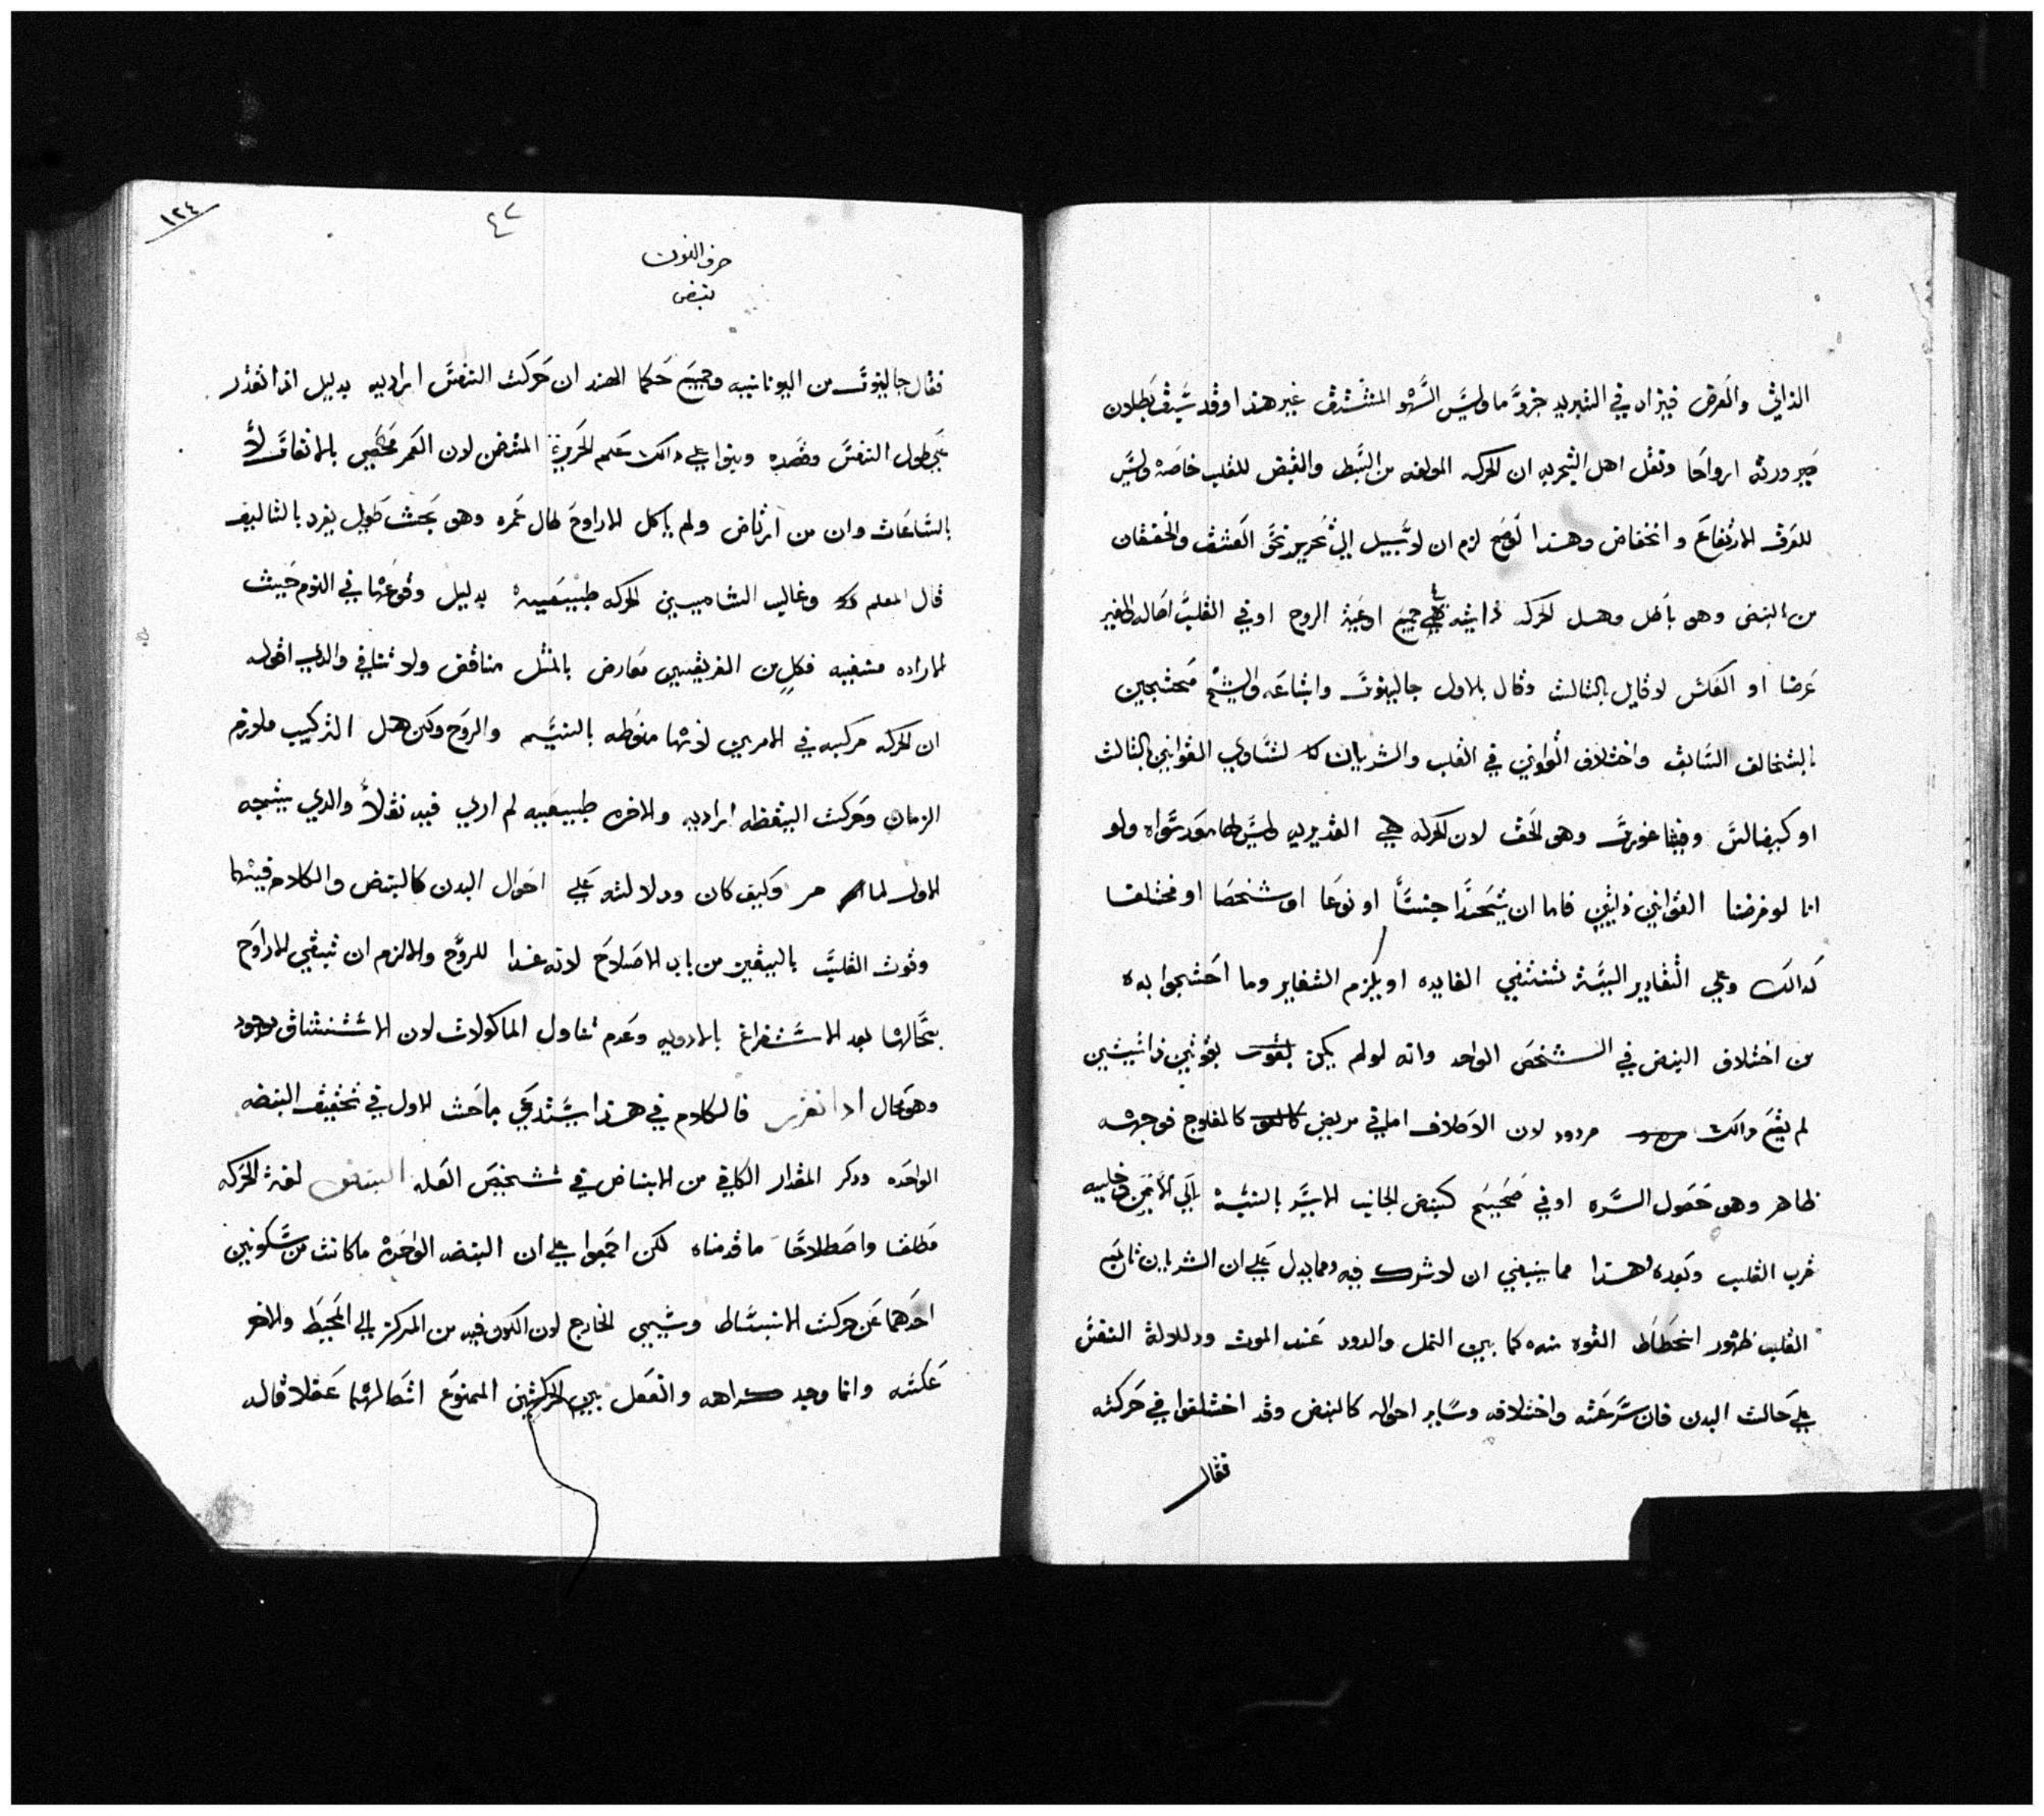 الذاتي والعرض فيزاد في التبريد جزوًا ما وليس السهو المنتشرق غير هذا وقد سبق بطلان
صيرورته ارواحا ونقل اهل التجربه ان الحركه المولفه من البسط والقبض للقلب خاصة وليس
للعرق الارتفاع وانخفاض وهذا لو صح لزم ان لا سبيل الي تحرير نحو العشق والخفقان
من النبض وهو باطل وهل الحركه ذاتيه في جميع اوعية الروح او في القلب اصاله والغير
عرضا او العكس لا قايل بالثالث وقال بالاول جالينوس واتباعه والشيخ محتجين
بالتخالف السابق واختلاف القوانين في القلب والشريان لتساوي القوانين بالثالث
او كيفالس وفيثاغورس وهو الحق لان الحركه هي القديريه وليس لها مورد سواه ولو
انا لو فرضنا القوانين ذاتيين فاما ان يتحدا جنسًا او نوعا او شخصا او مختلفا
كدالك وعلي التقادير البتة تنتفي الفايده او يلزم التغاير وما احتجوا به
من اختلاف النبض في الشخص الواحد وانه لو لم يكن بقوتين ذاتيتين
لم يقع دالك مردود لان الاختلاف اما في مريض كالمفلوج فوجهه
ظاهر وهو حصول السده او في صحيح كنبض الجانب الايسر بالنسبة الي الايمن
قرب القلب وبعده وهذا مما ينبغي ان لا شك فيه ومما يدل علي ان الشريان تابع
القلب ظهور انحطاط القوه منه كما بين النمل والدود عند الموت ودلالة التنفس
علي حالت البدن فان سرعته واختلافه وساير احواله كالنبض وقد اختلفوا في حركته
فقال
١٢٤
٤٢
حرف النون
نبض
فقال جالينوس من اليونانيه وجميع حكما الهند ان حركت التنفس اراديه بدليل انا نقدر
علي طول التنفس وقصره وبنوا علي دالك علم الحرف المتضمن لان العمر محصي بالانفاس لا
بالساعات وان من ارتاض ولم ياكل الارواح طال عمره وهو بحث طويل يفرد بالتاليف
قال المعلم وغالب الشاميين الحركه طبيعيه بدليل وقوعها في النوم حيث
الاراده منفيه فكل من الفريقين معارض بالمثل مناقض ولا تنافي والدي اقوله
ان الحركه مركبه في الامرين لانها منوطه بالنسيم والروح وكن هل التركيب ملازم
الزمان وحركت اليقظه اراديه والاخره طبيعيه لم اري فيه نقلًا والدي يتجه
الاول لما مر وكيف كان ودلالته علي احوال البدن كالنبض والكلام فيهما
وقوت القلب بالبيقين من باب الاصلاح لانه غدا للروح والالزم ان تبقي الارواح
بحالها بعد الاستفراغ بالادويه وعدم تناول الماكولات لان الاستنشاق موجود
وهو محال ادا تقرر فالكلام في هذا يستدعي مباحث الاول في تحقيق النبضه
الواحده ودكر المقدار الكافي من الانباض في تشخيص العله النبض لغة الحركه
مطلقا واصطلاحا ما قدمناه لكن اجمعوا علي ان النبضه الواحدة ما كانت من سكونين
احدهما عن حركت الانبساط ويسمي الخارج لان الكون فيه من المركز الي المحيط والاخر
عكسه وانما وجد كراهه واتصل بين الحركتين الممنوع اتصالهما عقلا قاله